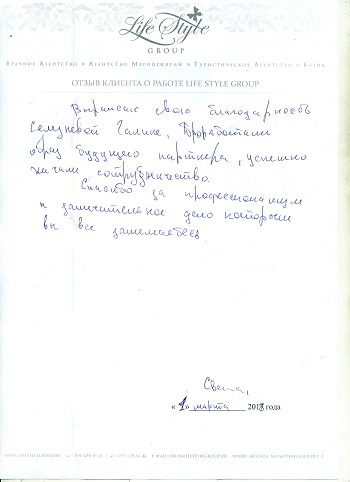 Life Style
GROUP
Брачное Агентство • Агентство Мероприятий • Туристическое Агентство • Батик
ОТЗЫВ КЛИЕНТА О РАБОТЕ LIFE STYLE GROUP
Выражаю свою благодарность
Селезневой Галине, Проработали
образ будущего партнера, успешно
начали сотрудничество.
Спасибо за профессионализм
и замечательное дело которым
вы все занимаетесь
Света,
« 10 » марта 2018 года